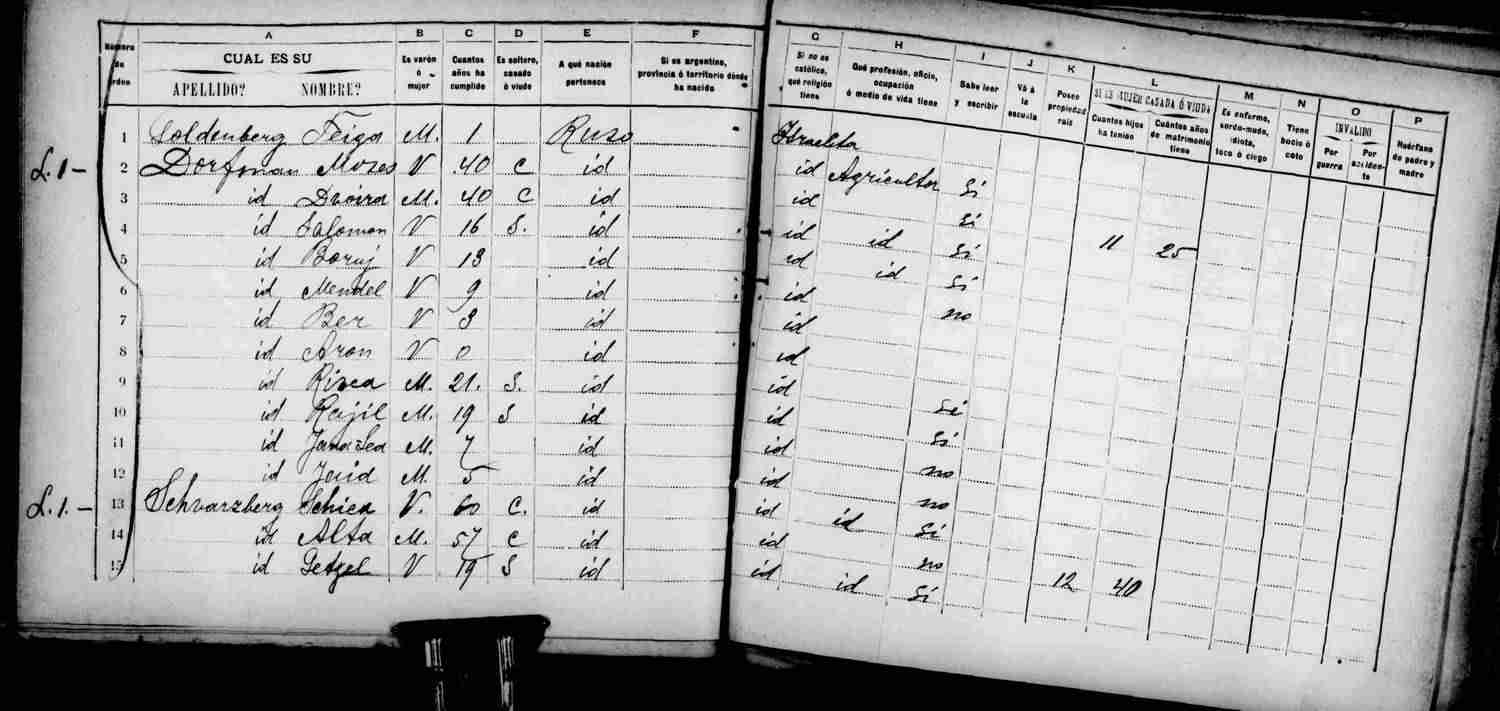 A B C D E F G H I J K L M N O P
Número de orden
CUAL ES SU
APELLIDO? NOMBRE?
Es varón ó mujer
Cuantos años ha cumplido
Es soltero, casado ó viudo
A qué nación pertenece
Si es argentino, provincia ó territorio donde ha nacido
Si no es católico, qué religión tiene
Qué profesión, oficio, ocupación ó medio de vida tiene
Sabe leer y escribir
Vá á la escuela
Posee propiedad raíz
SI ES MUJER CASADA Ó VIUDA
Cuantos hijos ha tenido
Cuántos años de matrimonio tiene
Es enfermo, sordo-mudo, idiota, loco ó ciego
Tiene bocio ó coto
INVALIDO
Por guerra
Por accidente
Huérfano de padre y madre
1 Goldenberg Feiga M. 1 Ruso Israelita
L. 1 - 2 Dorfman Moses V 40 C id id Agricultor Si
3 id Dvoira M. 40 C id id Si 11 25
4 id Salomon V 16 S. id id id Si
5 id Boruj V 13 id id id Si
6 id Mendel V 9 id id no
7 id Ber V 3 id id
8 id Aron V 0 id id
9 id Rivca M. 21. S. id id Si
10 id Rejil M. 19 S id id Si
11 id Jana Lea M. 7 id id no
12 id M. 5 id id no
L. 1. - 13 Schvarzberg Schica V. 60 C. id id id Si
14 id Alta M. 57 C id id no 12 40
15 id Getzel V 19 S id id id Si